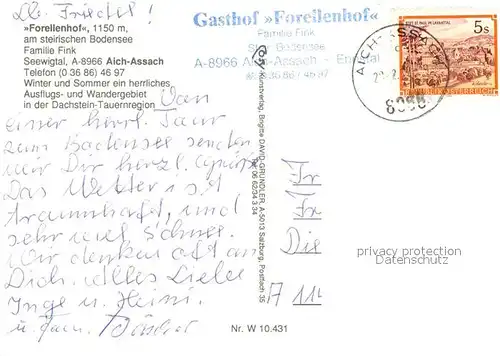 Lb. Friedel!
»Forellenhof«, 1150 m,
am steirischen Bodensee
Familie Fink
Seewigtal, A-8966 Aich-Assach
Telefon (0 36 86) 46 97
Winter und Sommer ein herrliches
Ausflugs- und Wandergebiet
in der Dachstein-Tauernregion
Von
einer herrl. Tour
zum Bodensee senden
wir Dir herzl. Grüße
Das Wetter ist
traumhaft, und
sehr viel Schnee.
Wir denken oft an
Dich. Alles Liebe
Inge u. Heini
u. Fam.
Nr. W 10.431
Kunstverlag, Brigitte DAVID-GRÜNDLER, A-5013 Salzburg, Postfach 35
Gasthof »Forellenhof«
Familie Fink
Bodensee
A-8966 Aich-Assach - Ennstal
36 86 / 46 97
AICH-ASSA
8966
5s
REPUBLIK ÖSTERREICH
Fr
Fr
Die
A 11
privacy protection
Datenschutz